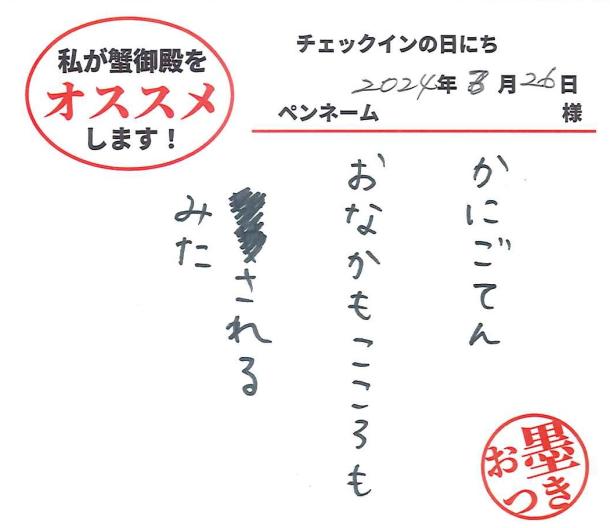 私が蟹御殿を
オススメ
します！
チェックインの日にち
2024年 月26日
ペンネーム 様
かにごてん
おなかもこころも
される
みた
お墨つき